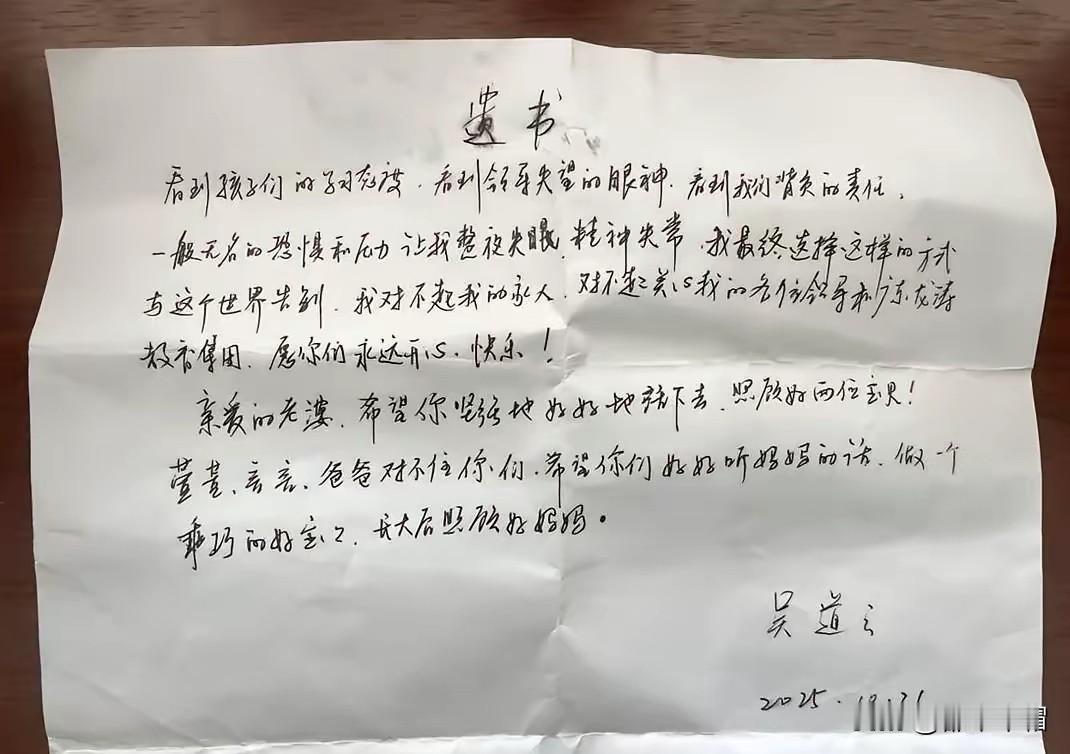 遗书
看到孩子们的学习态度、看到领导失望的眼神、看到我们背负的责任,
一般无名的恐惧和压力让我整夜失眠,精神失常,我最终选择这样的方式
与这个世界告别,我对不起我的家人,对不起关心我的各位领导和广东龙涛
教育集团,愿你们永远开心、快乐!
亲爱的老婆,希望你坚强地好好地活下去,照顾好两位宝贝!
萱萱、言言、爸爸对不住你们,希望你们好好听妈妈的话,做一个
乖巧的好宝宝,长大后照顾好妈妈。
吴道云
2025.